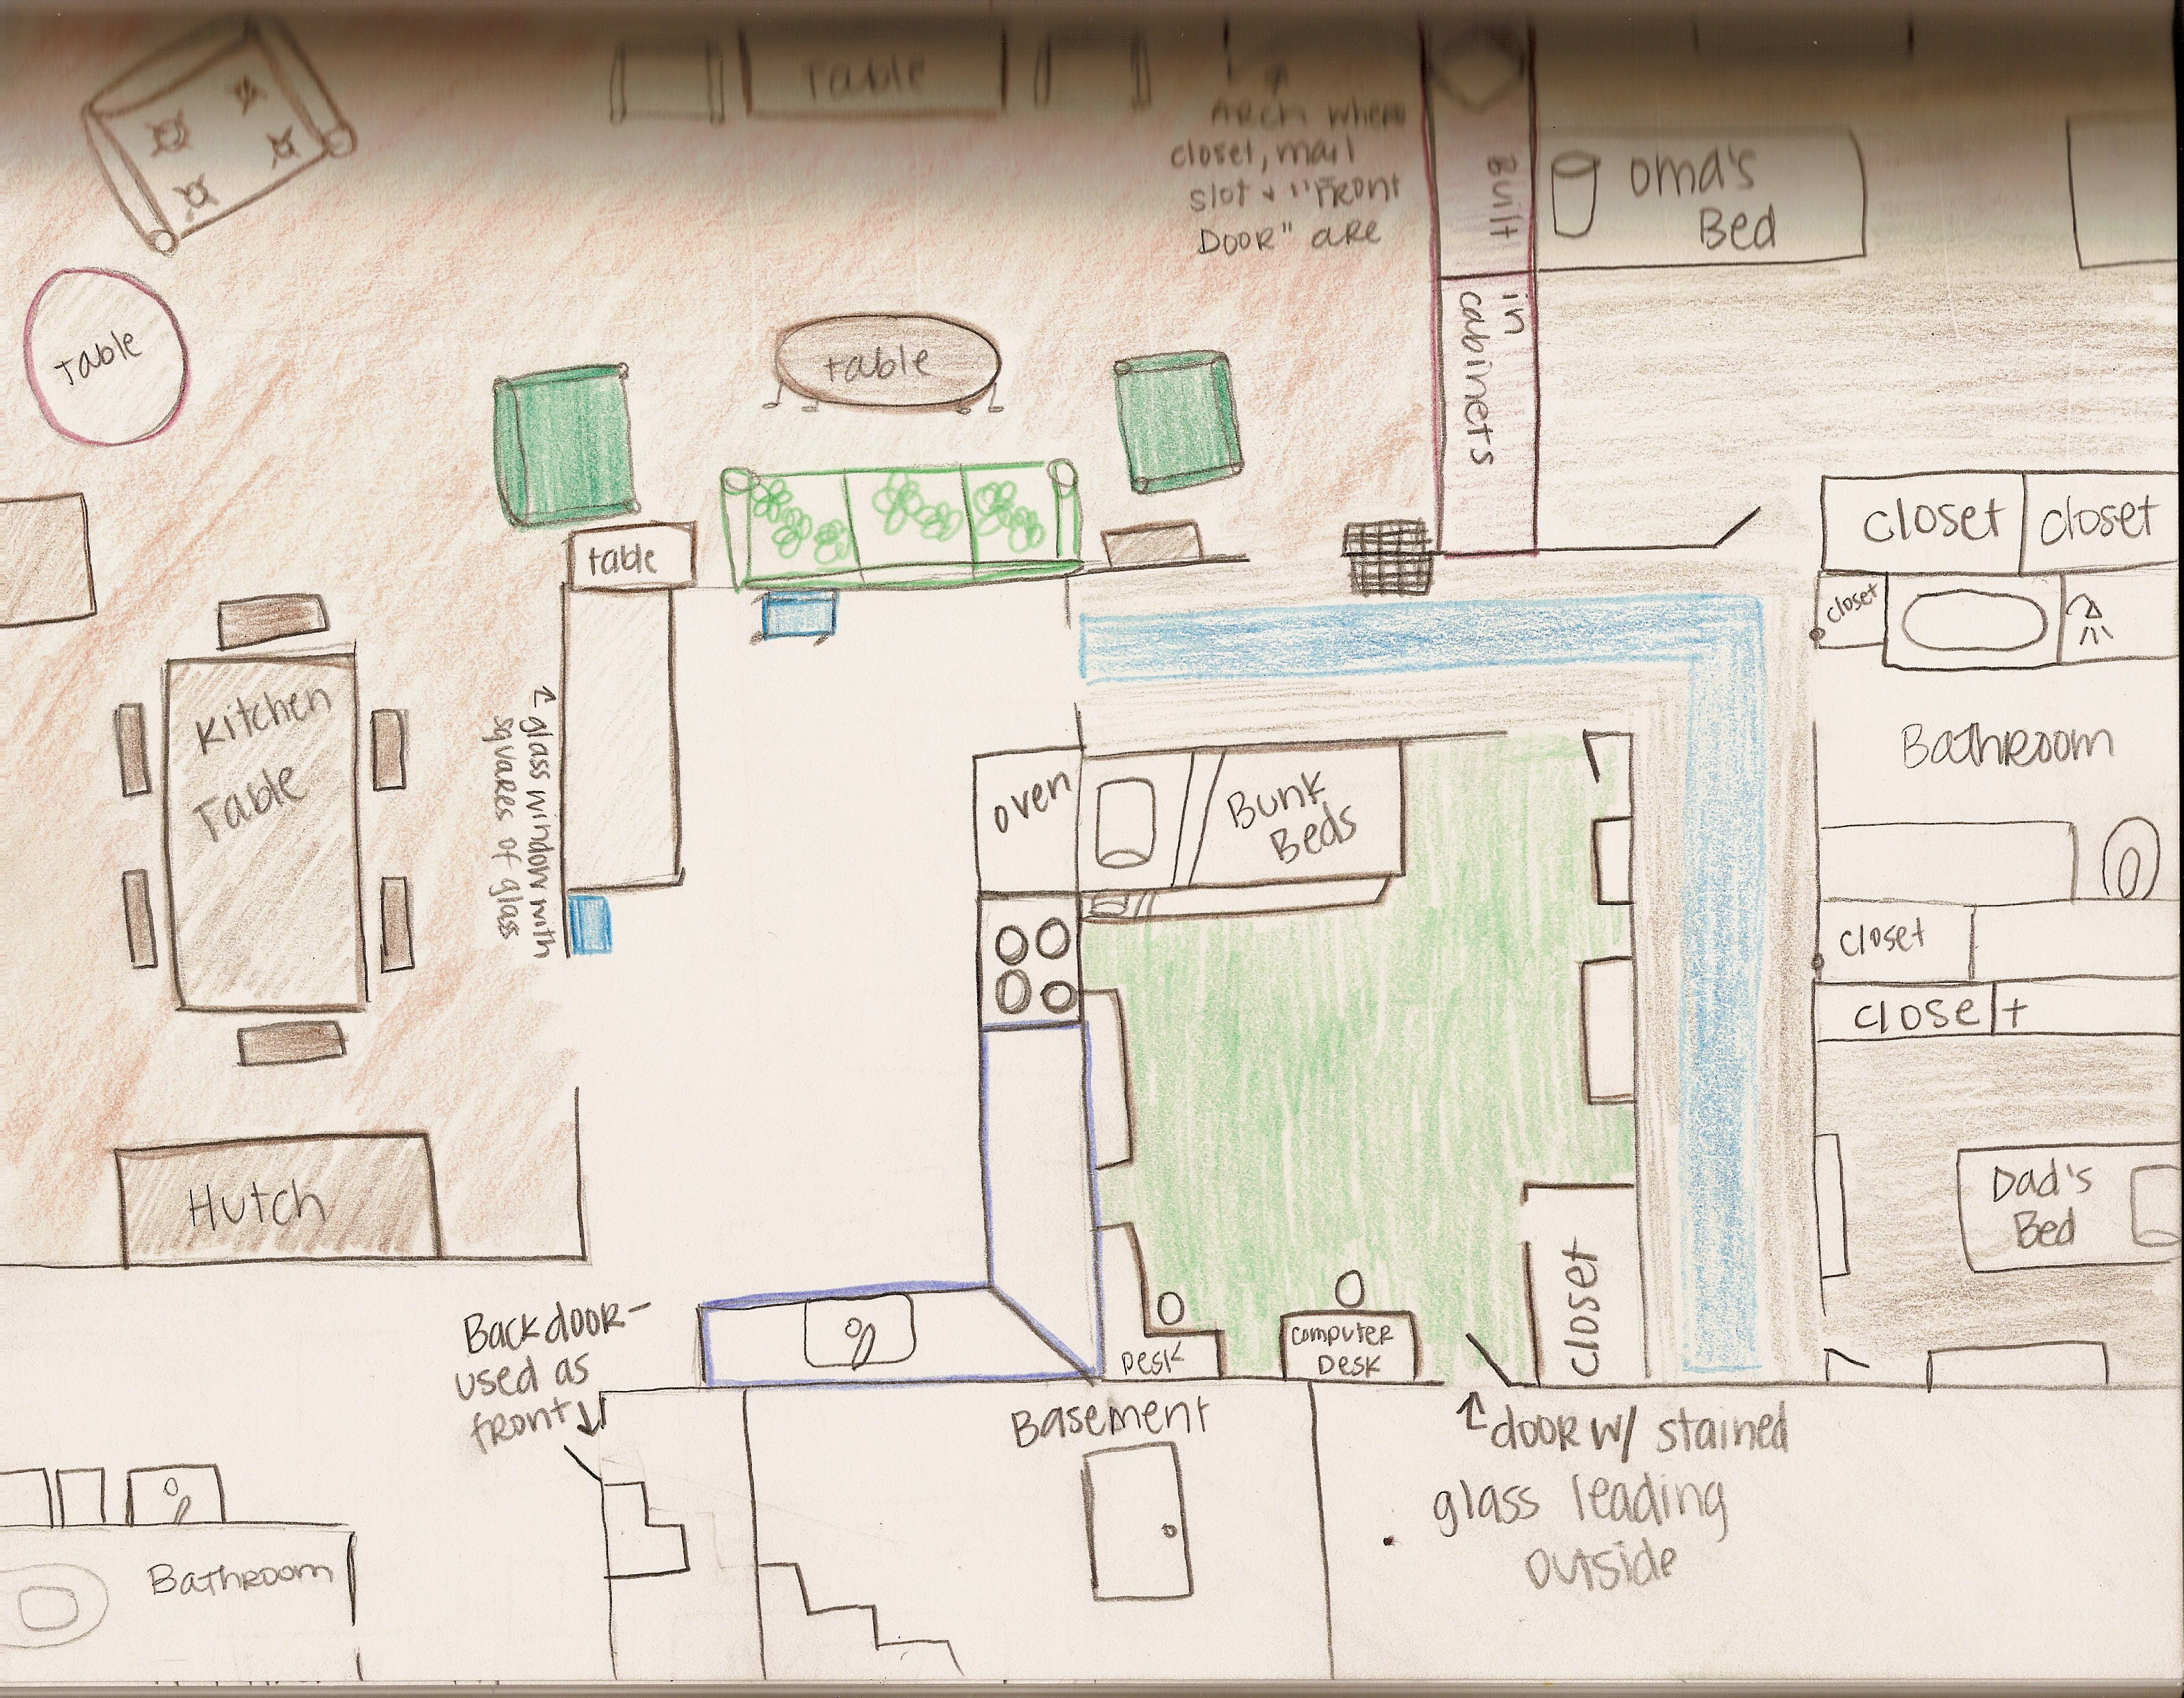 Table
Arch where
closet, mail
slot + "Front
DOOR" are
Built
in
cabinets
oma's
Bed
table
table
table
closet
closet
closet
Kitchen
Table
glass window with
squares of glass
oven
Bunk
Beds
Bathroom
closet
closet
Hutch
Dad's
Bed
closet
Desk
computer
Desk
Back door-
used as
front
Basement
door w/ stained
glass leading
outside
Bathroom